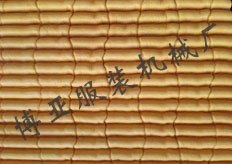 博亚服装机械厂